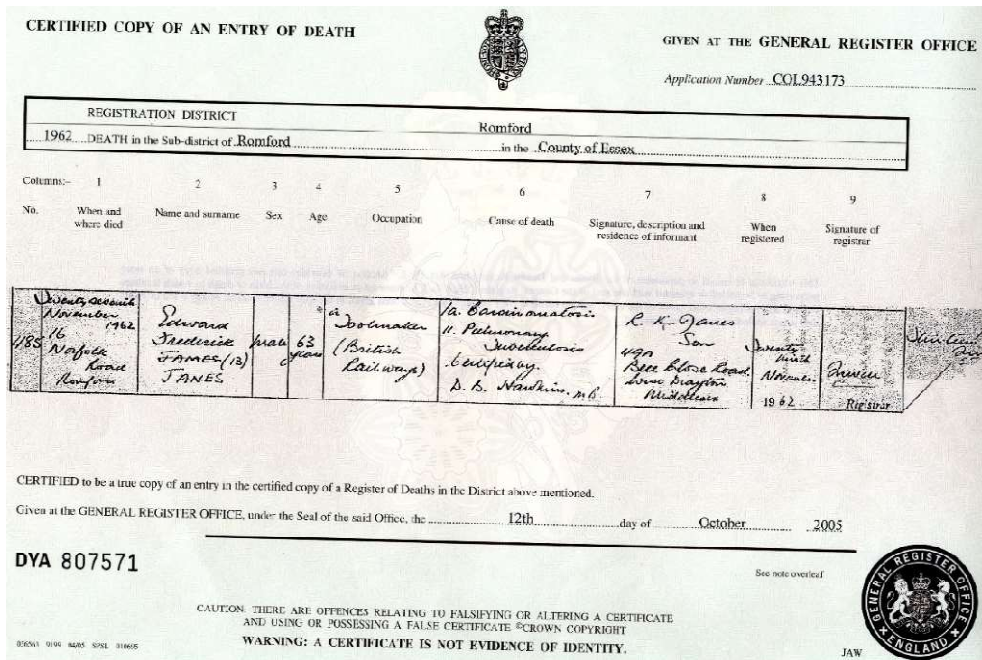 CERTIFIED COPY OF AN ENTRY OF DEATH
GIVEN AT THE GENERAL REGISTER OFFICE
Application Number COL943173
REGISTRATION DISTRICT Romford
1962 DEATH in the Sub-district of Romford in the County of Essex
Columns:- 1 2 3 4 5 6 7 8 9
No. When and where died Name and surname Sex Age Occupation Cause of death Signature, description and residence of informant When registered Signature of registrar
485
Twenty seventh
November
1962
16
Norfolk
Road
Romford
Edward
Frederick
JAMES (13)
JANES
Male
63
years
a
Toolmaker
(British
Railways)
1a. Carcinomatosis
11. Pulmonary
Tuberculosis
Certified by
D. B. Hawkins. MB
R. K. Janes
Son
Close Road
Drayton
Middlesex
Twenty
ninth
November
1962
Registrar
CERTIFIED to be a true copy of an entry in the certified copy of a Register of Deaths in the District above mentioned.
Given at the GENERAL REGISTER OFFICE, under the Seal of the said Office, the 12th day of October 2005
DYA 807571
See note overleaf
CAUTION: THERE ARE OFFENCES RELATING TO FALSIFYING OR ALTERING A CERTIFICATE
AND USING OR POSSESSING A FALSE CERTIFICATE ©CROWN COPYRIGHT
WARNING: A CERTIFICATE IS NOT EVIDENCE OF IDENTITY.
JAW
GENERAL REGISTER OFFICE
ENGLAND